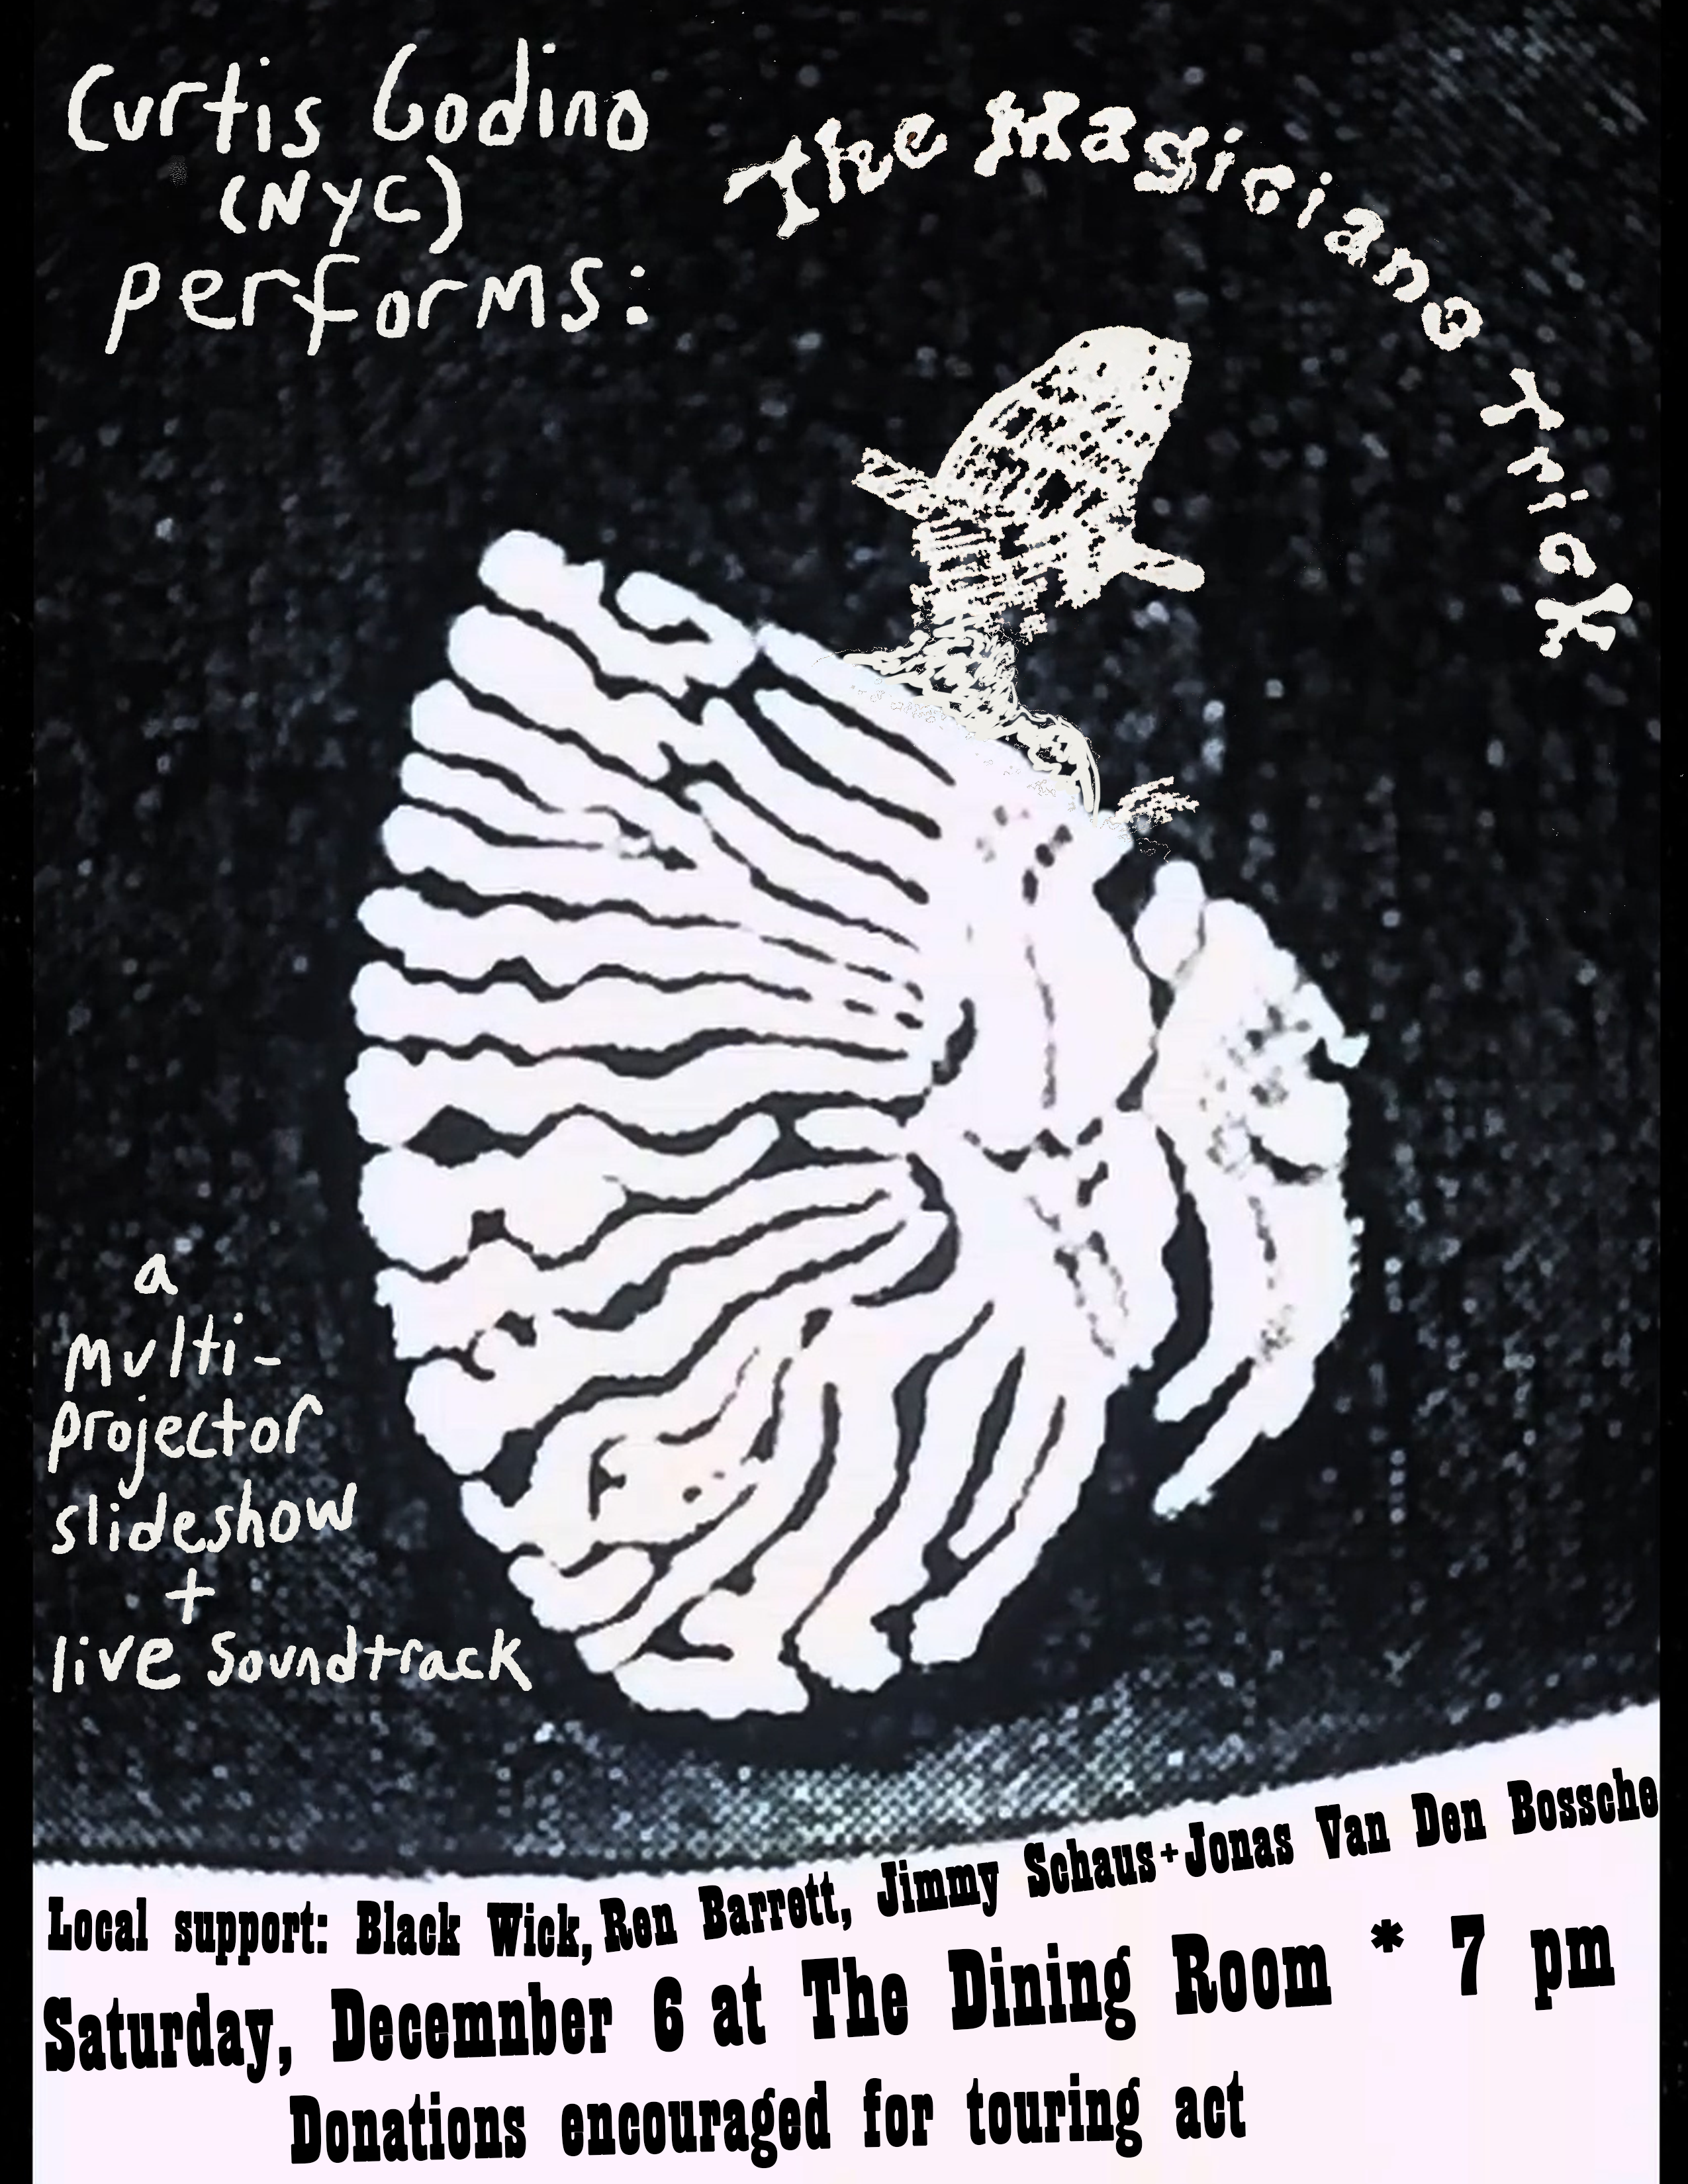 Curtis Godino
(NYC)
performs:
The Magicians Trick
a
multi-
projector
slideshow
+
live soundtrack
Local support: Black Wick, Ren Barrett, Jimmy Schaus + Jonas Van Den Bossche
Saturday, Decemnber 6 at The Dining Room * 7 pm
Donations encouraged for touring act